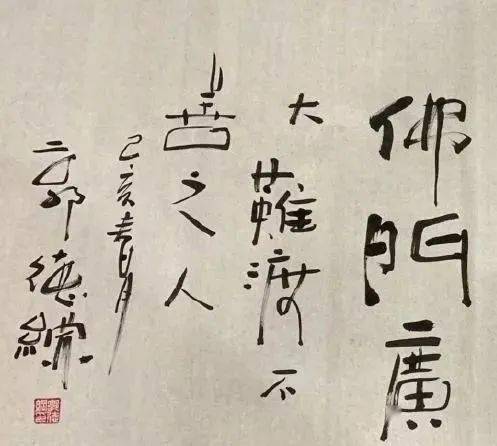 佛門廣
大難渡不
善之人
己亥春月
郭德綱